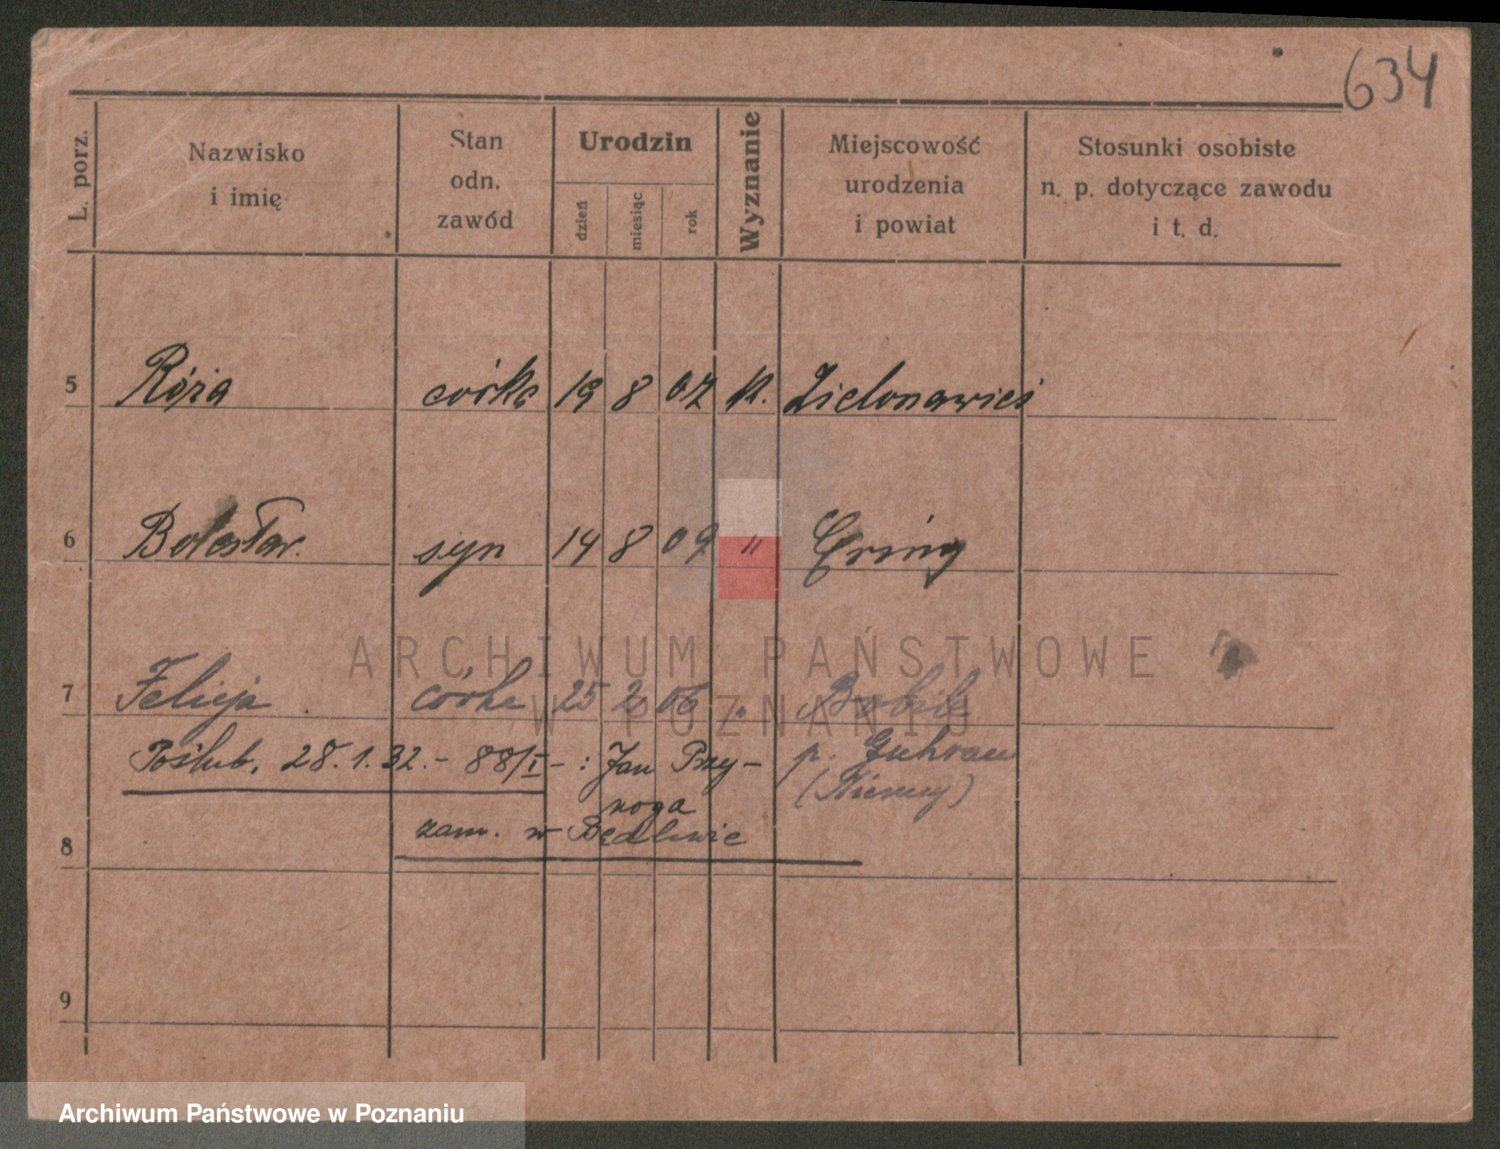 634
L. porz.
Nazwisko
i imię
Stan
odn.
zawód
Urodzin
dzień
miesiąc
rok
Wyznanie
Miejscowość
urodzenia
i powiat
Stosunki osobiste
n. p. dotyczące zawodu
i t. d.
5 Róża córka 19 8 07 K. Zielonawieś
6 Bolesław syn 14 8 09 "
ARCHIWUM PAŃSTWOWE
W POZNANIU
7 Felicja córka 25 2 06 "
Poślub. 28.1.32.- 88/I - : Jan Przy-
noga
p. Guhrau
(Niemcy)
zam. w Będlewie
8
9
Archiwum Państwowe w Poznaniu